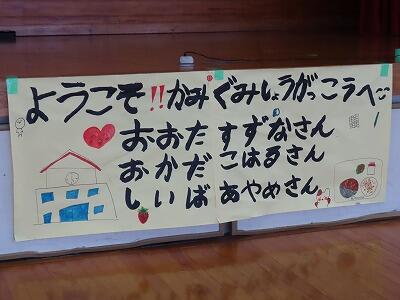 ようこそ!!かみぐみしょうがっこうへ
おおた すずなさん
おかだ こはるさん
しいば あやめさん